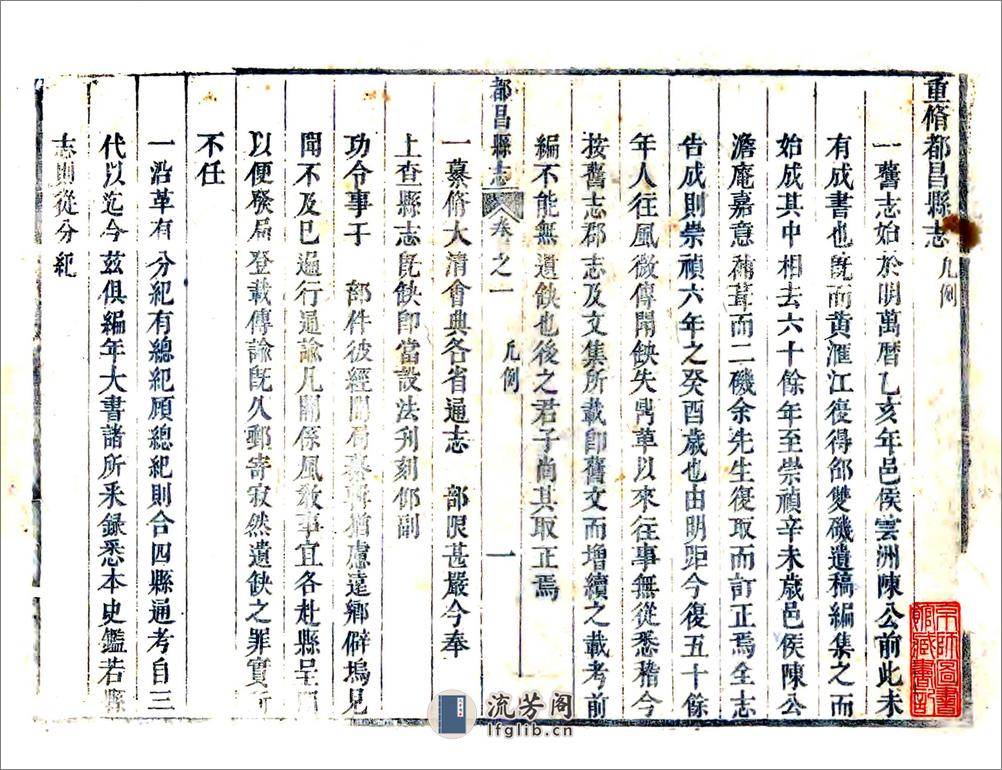 重脩都昌縣志
凡例
一舊志始於明萬曆乙亥年邑侯雲洲陳公前此未
有成書也旣而黄滙江復得邵雙磯遺稿編集之而
始成其中相去六十餘年至崇禎辛未歲邑侯陳公
澹庵嘉意補葺而二磯余先生復取而訂正焉全志
告成則崇禎六年之癸酉歲也由明距今復五十餘
年人往風微傳聞缺失鼎革以來往事無從悉稽今
按舊志郡志及文集所載卽舊文而增續之載考前
編不能無遺缺也後之君子尚其取正焉
都昌縣志
卷之一
凡例
一
一纂脩大清會典各省通志 部限甚嚴今奉
上查縣志旣缺卽當設法刋刻仰副
功令事于 部件彼經開局纂輯猶慮遠鄉僻塢見
聞不及已遍行通諭凡關係風敎事宜各赴縣呈
以便發局登載傳諭旣久郵寄寂然遺缺之罪實所
不任
一沿革有分紀有總紀顧總紀則合四縣通考自三
代以迄今茲俱編年大書諸所釆錄悉本史鑑若縣
志則從分紀
京師圖書
館藏書記
流芳阁
lfglib.cn